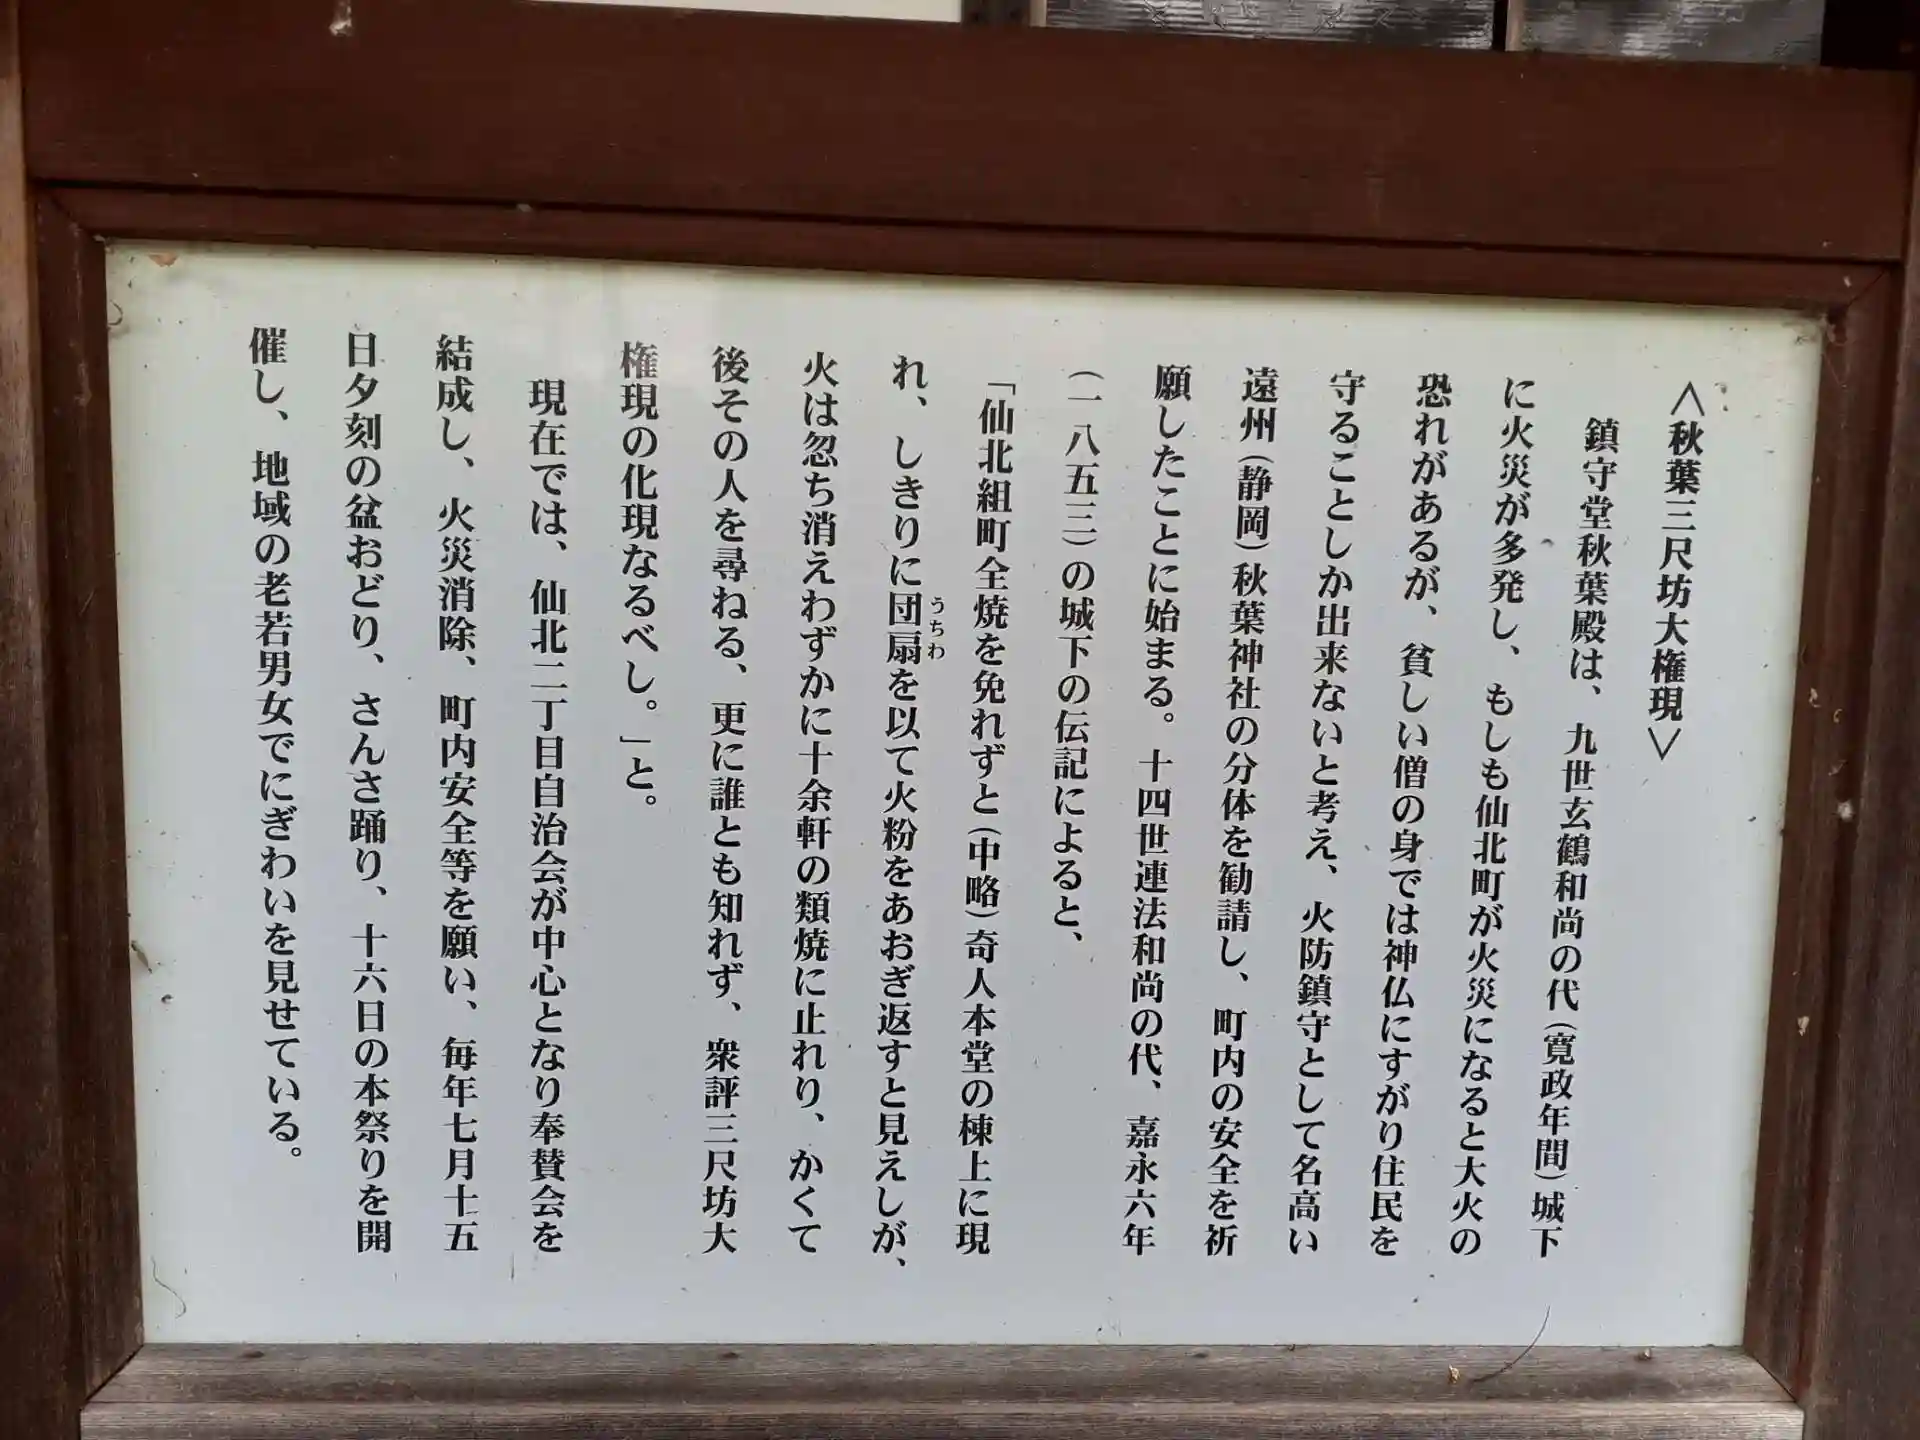 ＜秋葉三尺坊大権現＞
鎮守堂秋葉殿は、九世玄鶴和尚の代(寛政年間)城下
に火災が多発し、もしも仙北町が火災になると大火の
恐れがあるが、貧しい僧の身では神仏にすがり住民を
守ることしか出来ないと考え、火防鎮守として名高い
遠州(静岡)秋葉神社の分体を勧請し、町内の安全を祈
願したことに始まる。十四世連法和尚の代、嘉永六年
(一八五三)の城下の伝記によると、
「仙北組町全焼を免れずと(中略)奇人本堂の棟上に現
れ、しきりに団扇を以て火粉をあおぎ返すと見えしが、
うちわ
火は忽ち消えわずかに十余軒の類焼に止れり、かくて
後その人を尋ねる、更に誰とも知れず、衆評三尺坊大
権現の化現なるべし。」と。
現在では、仙北二丁目自治会が中心となり奉賛会を
結成し、火災消除、町内安全等を願い、毎年七月十五
日夕刻の盆おどり、さんさ踊り、十六日の本祭りを開
催し、地域の老若男女でにぎわいを見せている。